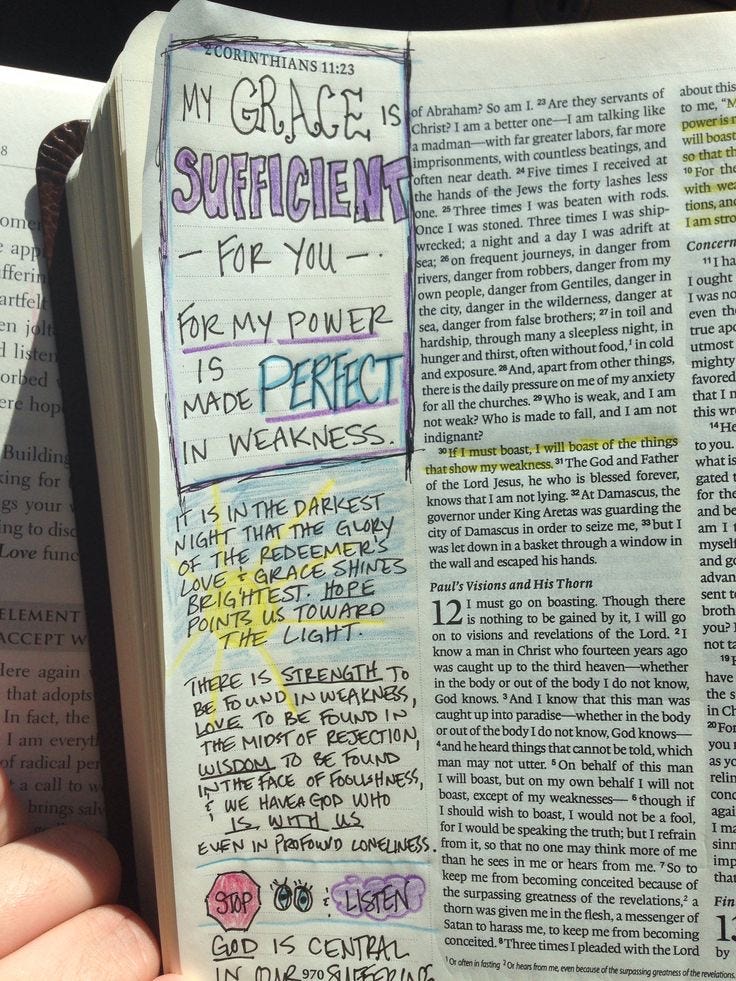 8
ome
e app
fferin
artfelt
en jolt
d listen
orbed
ere hop
Building
king for
gs your
ing to disc
Love func
ELEMENT
ACCEPT W
Here again
that adopts
In fact, the
I am everyt
of radical per
a call to w
brings salv
2 CORINTHIANS 11:23
MY GRACE IS
SUFFICIENT
- FOR YOU -.
FOR MY POWER
IS
MADE PERFECT
IN WEAKNESS.
IT IS IN THE DARKEST
NIGHT THAT THE GLORY
OF THE REDEEMER'S
LOVE & GRACE SHINES
BRIGHTEST. HOPE
POINTS US TOWARD
THE LIGHT.
THERE IS STRENGTH TO
BE FOUND IN WEAKNESS,
LOVE TO BE FOUND IN
THE MIDST OF REJECTION,
WISDOM TO BE FOUND
IN THE FACE OF FOOLISHNESS,
& WE HAVE A GOD WHO
IS WITH US
EVEN IN PROFOUND LONELINESS.
STOP & LISTEN
GOD IS CENTRAL
IN OUR SUFFERING
970
of Abraham? So am I. 23 Are they servants of
Christ? I am a better one—I am talking like
a madman—with far greater labors, far more
imprisonments, with countless beatings, and
often near death. 24 Five times I received at
the hands of the Jews the forty lashes less
one. 25 Three times I was beaten with rods.
Once I was stoned. Three times I was ship-
wrecked; a night and a day I was adrift at
sea; 26 on frequent journeys, in danger from
rivers, danger from robbers, danger from my
own people, danger from Gentiles, danger in
the city, danger in the wilderness, danger at
sea, danger from false brothers; 27 in toil and
hardship, through many a sleepless night, in
hunger and thirst, often without food,1 in cold
and exposure. 28 And, apart from other things,
there is the daily pressure on me of my anxiety
for all the churches. 29 Who is weak, and I am
not weak? Who is made to fall, and I am not
indignant?
30 If I must boast, I will boast of the things
that show my weakness. 31 The God and Father
of the Lord Jesus, he who is blessed forever,
knows that I am not lying. 32 At Damascus, the
governor under King Aretas was guarding the
city of Damascus in order to seize me, 33 but I
was let down in a basket through a window in
the wall and escaped his hands.
Paul's Visions and His Thorn
12 I must go on boasting. Though there
is nothing to be gained by it, I will go
on to visions and revelations of the Lord. 2 I
know a man in Christ who fourteen years ago
was caught up to the third heaven—whether
in the body or out of the body I do not know,
God knows. 3 And I know that this man was
caught up into paradise—whether in the body
or out of the body I do not know, God knows—
4 and he heard things that cannot be told, which
man may not utter. 5 On behalf of this man
I will boast, but on my own behalf I will not
boast, except of my weaknesses— 6 though if
I should wish to boast, I would not be a fool,
for I would be speaking the truth; but I refrain
from it, so that no one may think more of me
than he sees in me or hears from me. 7 So to
keep me from becoming conceited because of
the surpassing greatness of the revelations,2 a
thorn was given me in the flesh, a messenger of
Satan to harass me, to keep me from becoming
conceited. 8 Three times I pleaded with the Lord
1 Or often in fasting 2 Or hears from me, even because of the surpassing greatness of the revelations.
about this
to me, "M
power is m
will boast
so that th
10 For the
with wea
tions, and
I am stro
Concern
11 I ha
I ought
I was no
even the
true apo
utmost
mighty
favored
that I m
this wro
14 He
to you.
what is
gated t
for the
and be
am I t
myself
and go
advan
sent to
broth
you? I
not ta
19
have
the s
in Ch
20 For
you n
as yo
relin
conc
agai
I ma
sinn
imp
that
Fin
13
by